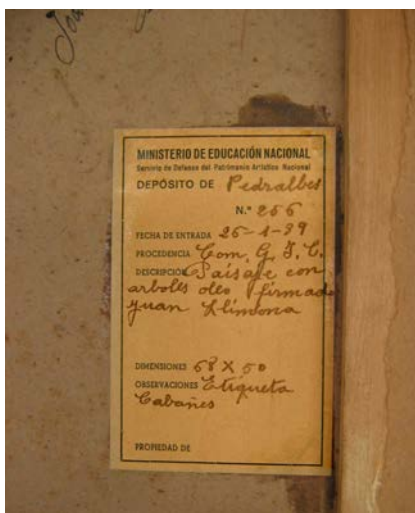 MINISTERIO DE EDUCACIÓN NACIONAL
Servicio de Defensa del Patrimonio Artístico Nacional
DEPÓSITO DE Pedralbes
N.º 256
FECHA DE ENTRADA 26-1-39
PROCEDENCIA Com. G. J. C.
DESCRIPCIÓN Paisaje con
arboles oleo firmado
Juan Llimona
DIMENSIONES 68 X 50
OBSERVACIONES Etiqueta
Cabañes
PROPIEDAD DE